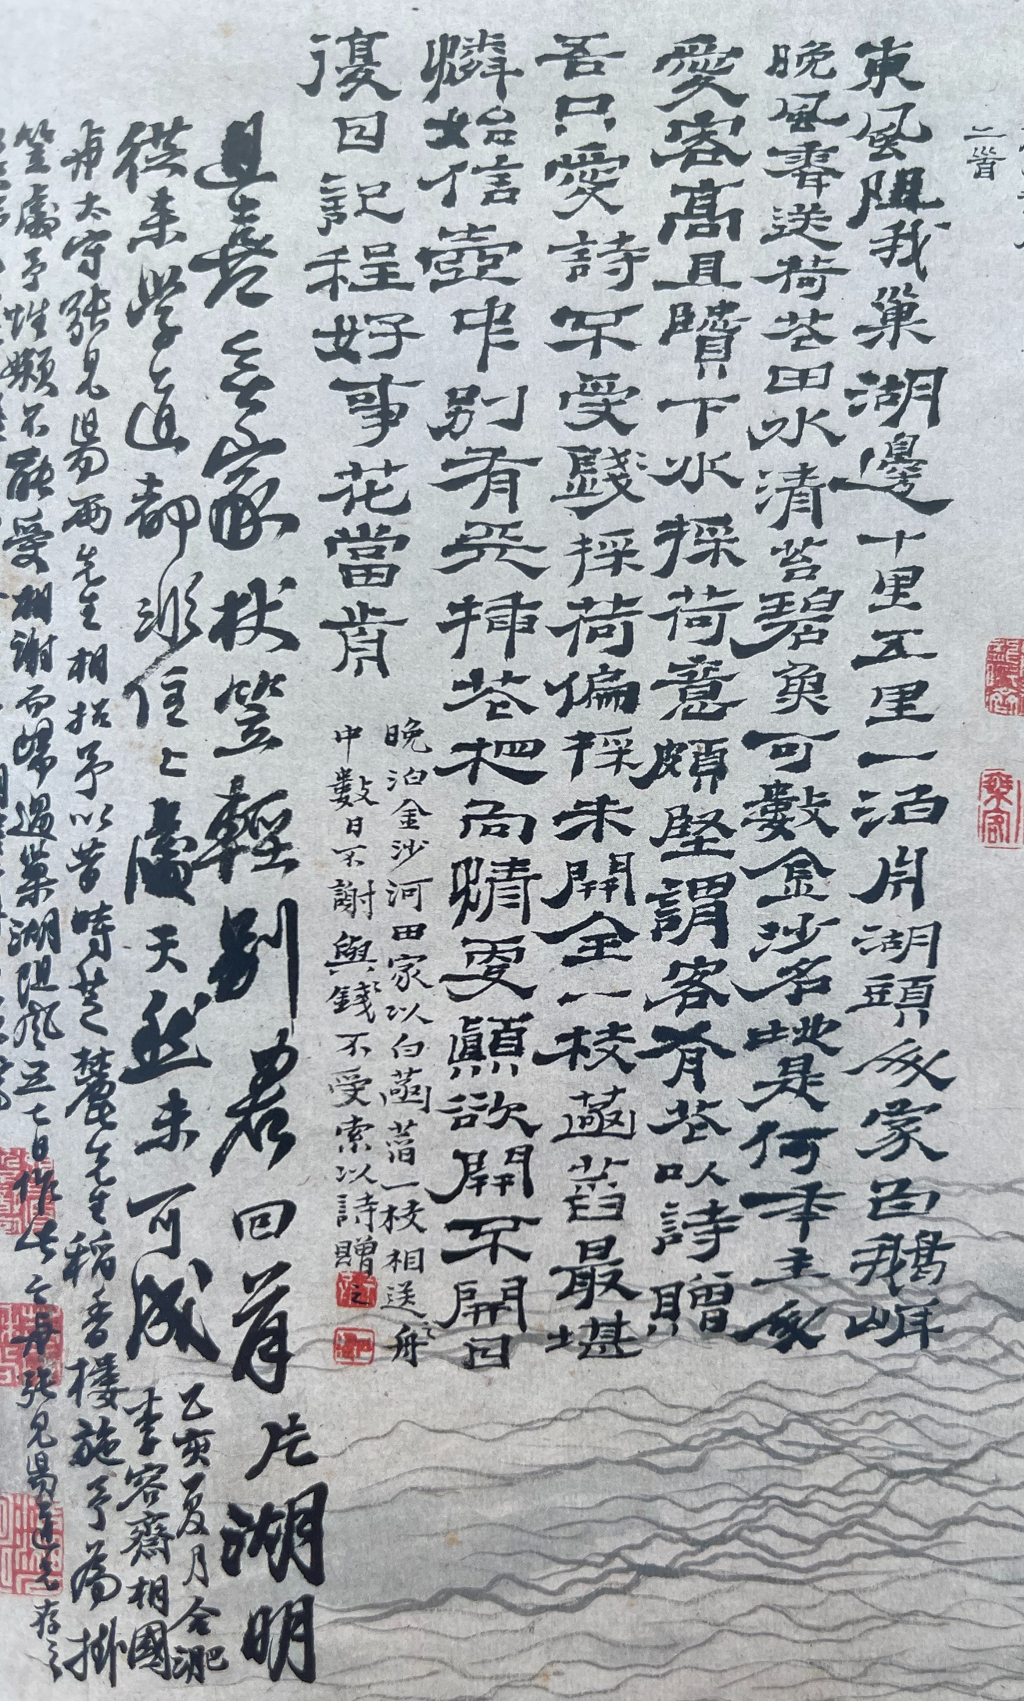 二首
東風阻我巢湖邊十里五里一泊舟湖頭人家白鵝岸
晚風香送荷花田水清苔碧魚可數金沙名地是何年主人
愛客高且賢下水採荷意頗堅謂客有花以詩贈
吾只愛詩不受錢採荷偏採未開全一枝菡萏最堪
憐始信壺中別有天插花把向情更顛欲開不開日
復日記程好事花當肯
晚泊金沙河田家以白菡萏一枝相送舟
中數日不謝與錢不受索以詩贈之
且喜無家杖笠輕別君回首片湖明
從來學道都非住住處天然未可成
乙亥夏月合淝
李容齋相國
太守張見陽兩先生相招予以昔時芝麓先生稻香樓施予為掛
笠處予性懶不能受相謝而歸過巢湖阻風五七日作此 張見陽道先存之